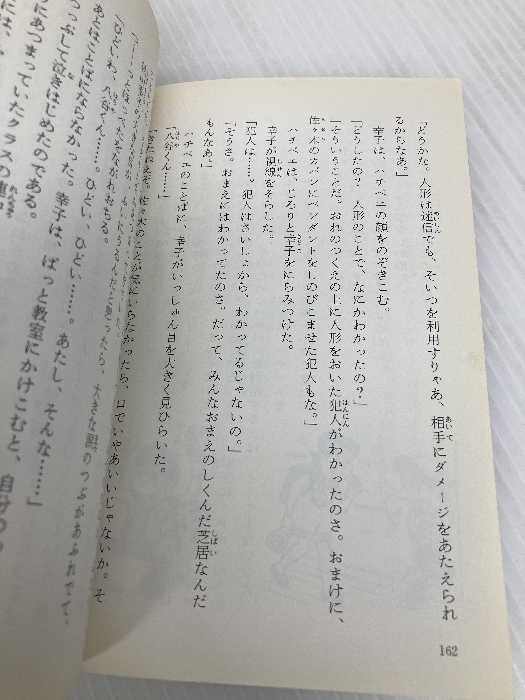 「どうかな。人形は迷信でも、そいつを利用すりゃあ、相手にダメージをあたえられ
るからなあ。」
幸子は、ハチベエの顔をのぞきこむ。
「どうしたの？人形のことで、なにかわかったの？」
「そういうことだ。おれのつくえの上に人形をおいた犯人がわかったのさ。おまけに、
佐々木のカバンにペンダントをしのびこませた犯人もな。」
ハチベエは、じろりと幸子をにらみつけた。
幸子が視線をそらした。
「犯人は……。犯人はさいしょから、わかってるじゃないの。」
「そうさ。おまえにはわかってたのさ。だって、みんなおまえのしくんだ芝居なんだ
もんなあ。」
ハチベエのことばに、幸子がいっしゅん目を大きく見ひらいた。
「八谷くん……。」
佐々木のことが気にいらなかったら、口でいやあいいじゃないか。そ
大きな涙のつぶがあふれでて、
ながれおちる。
「ひどいわ、八谷くん……。ひどい、ひどい……。あたし、そんな……」
あとはことばにならなかった。幸子は、ぱっと教室にかけこむと、自分の
つっぷして泣きはじめたのである。
にあつまっていたクラスの連
162